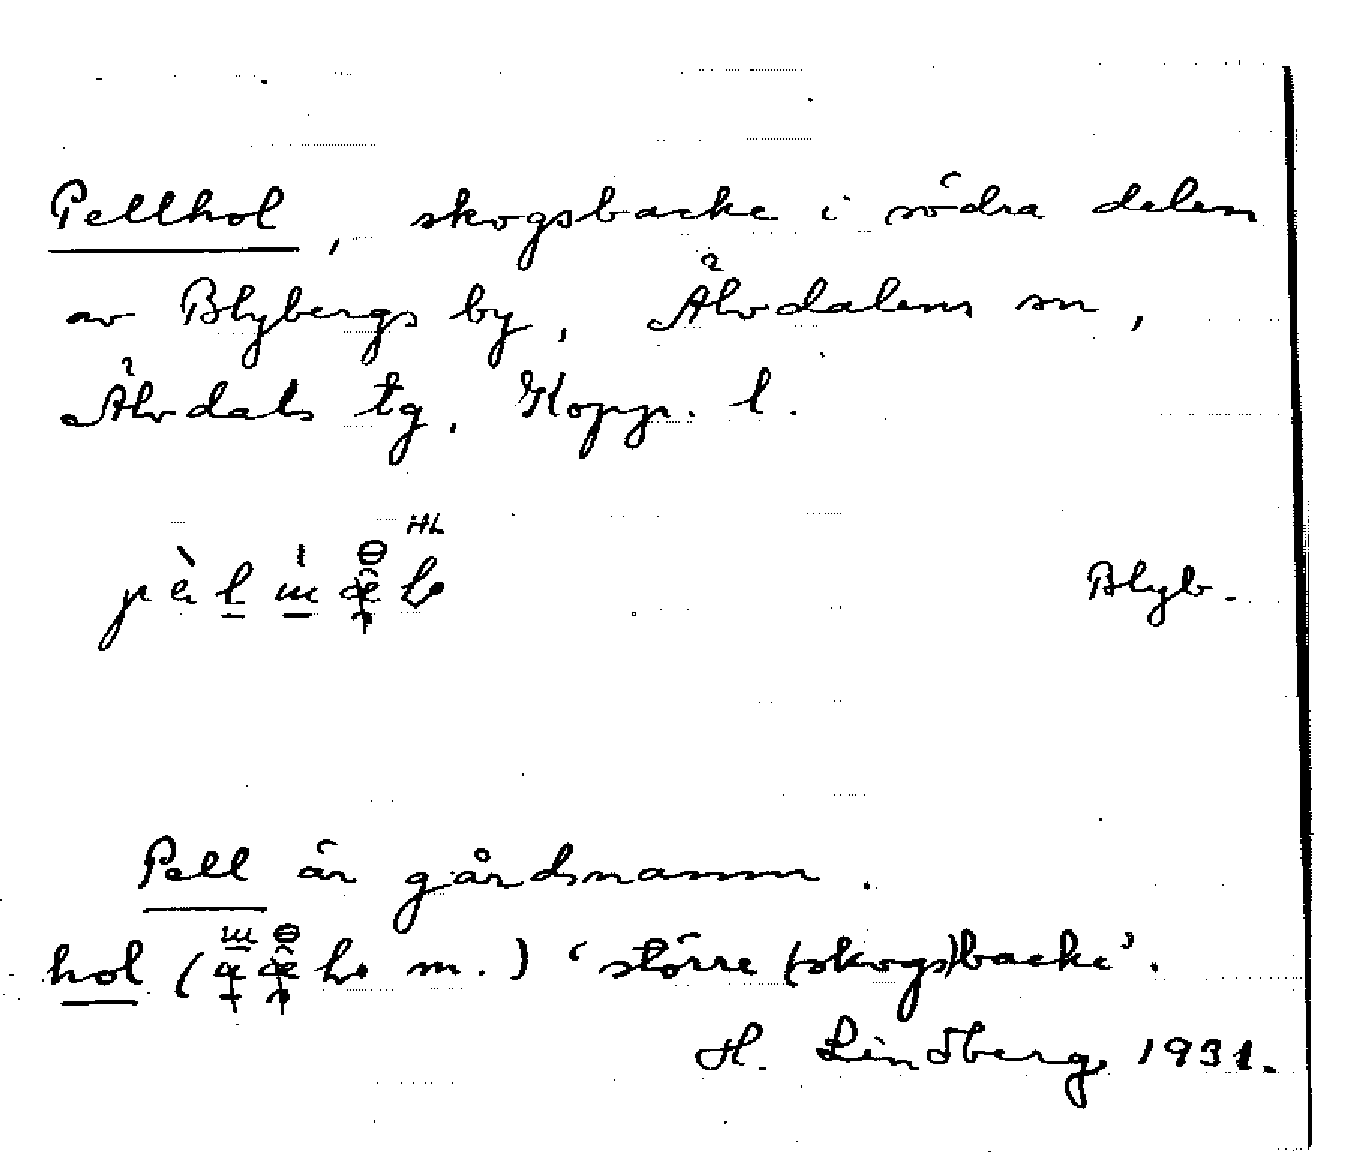 Pellhol, skogsbacke i södra delen
av Blybergs by, Älvdalens sn,
Älvdals tg. Kopp. l.
HL
Blyb.
Pell är gårdsnamn.
hol ( m.) ‘större (skogs)backe’.
H. Lindberg 1931.